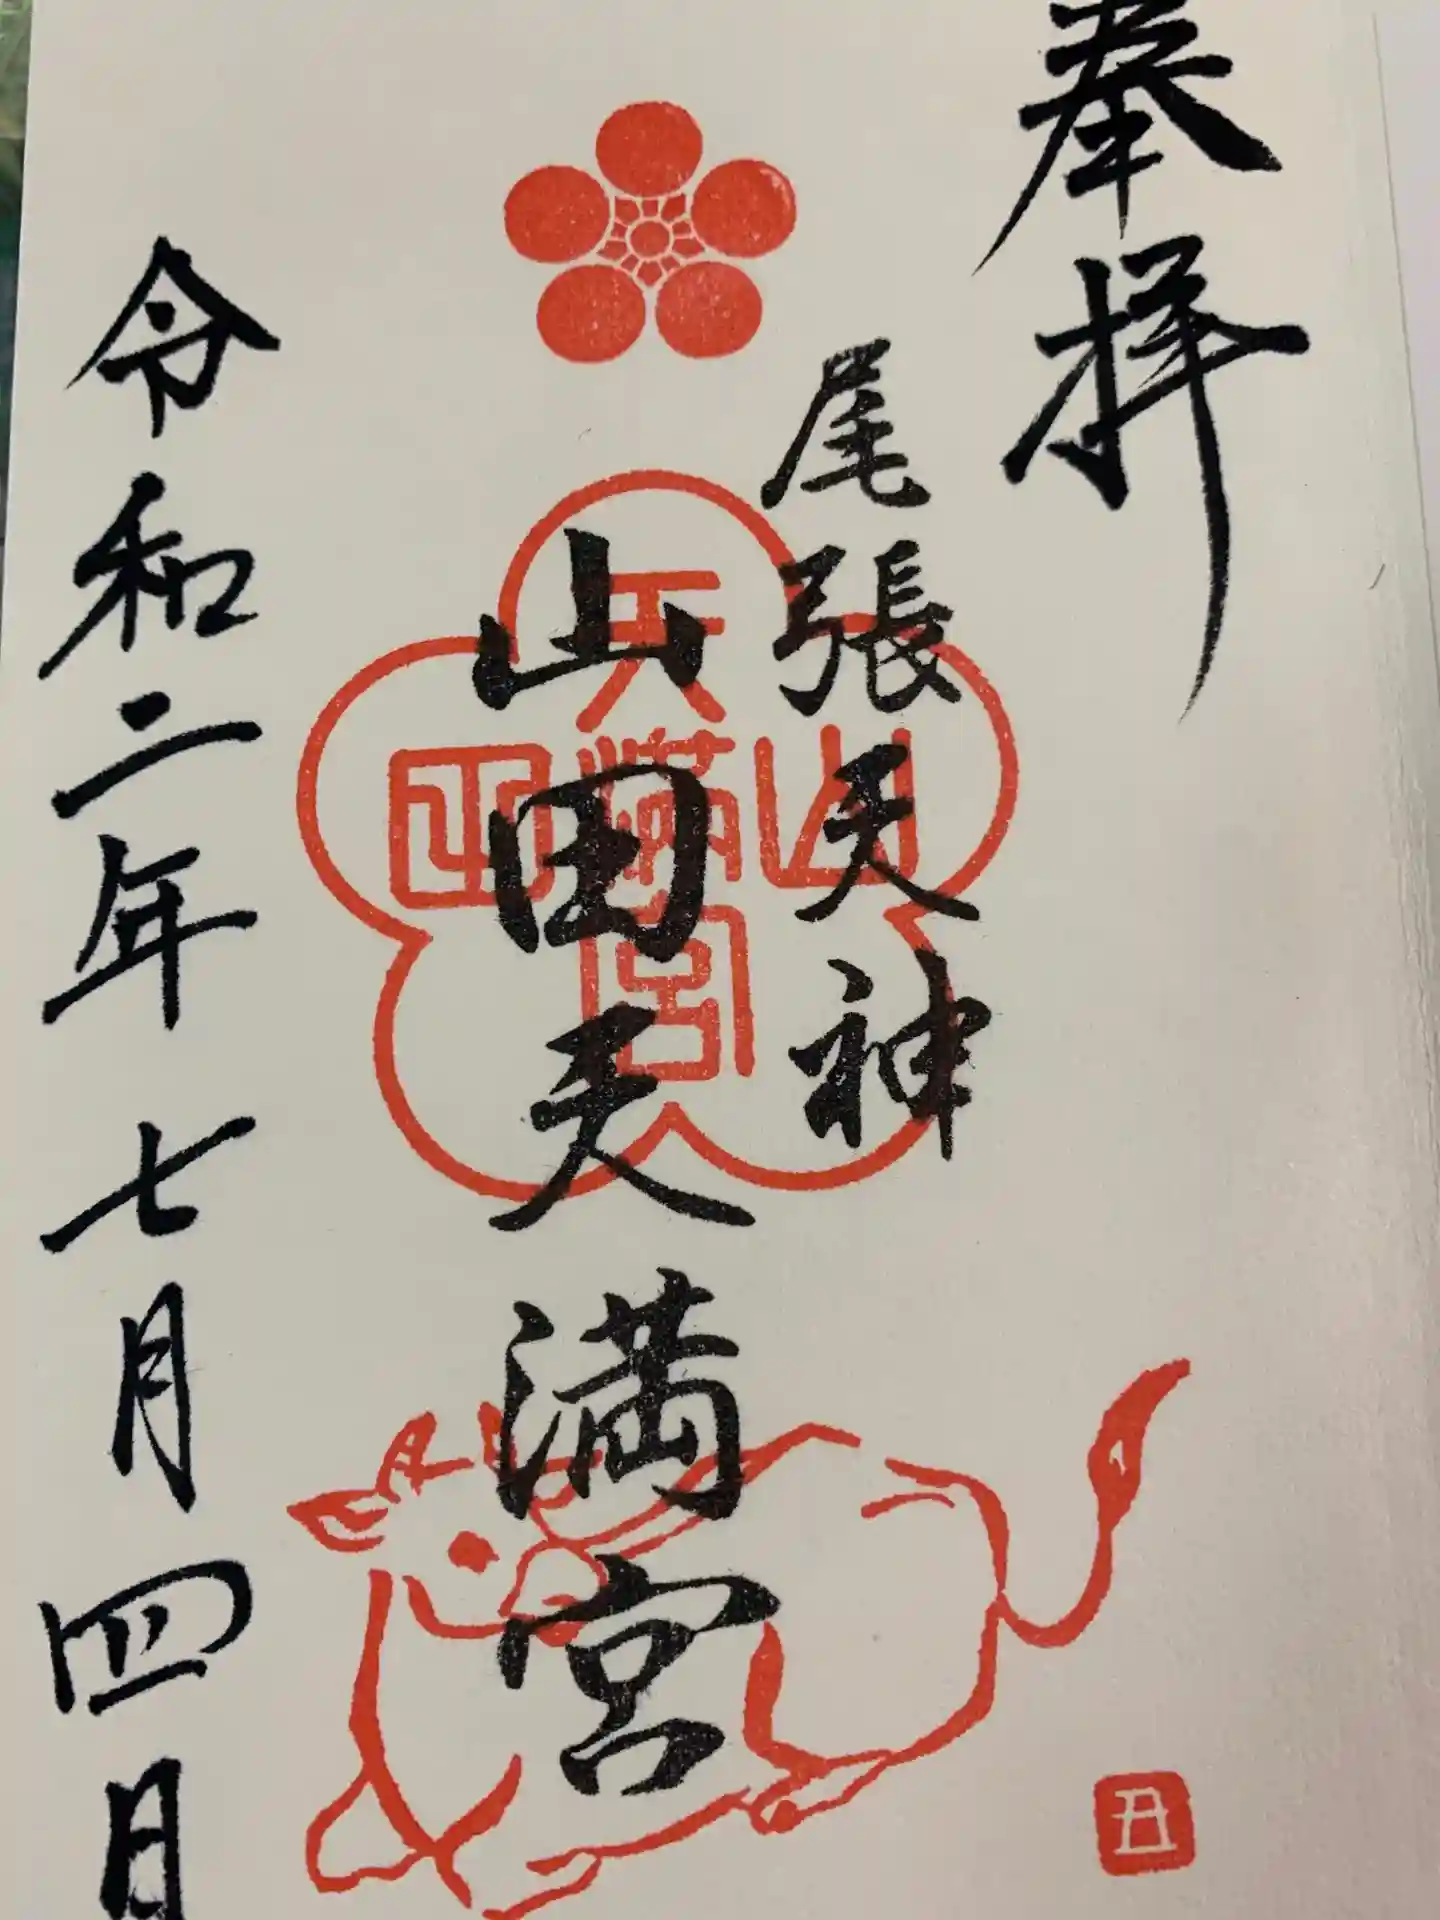 奉拝
尾張天神
山田天満宮
令和二年七月四日
天
山満田
宮
丑